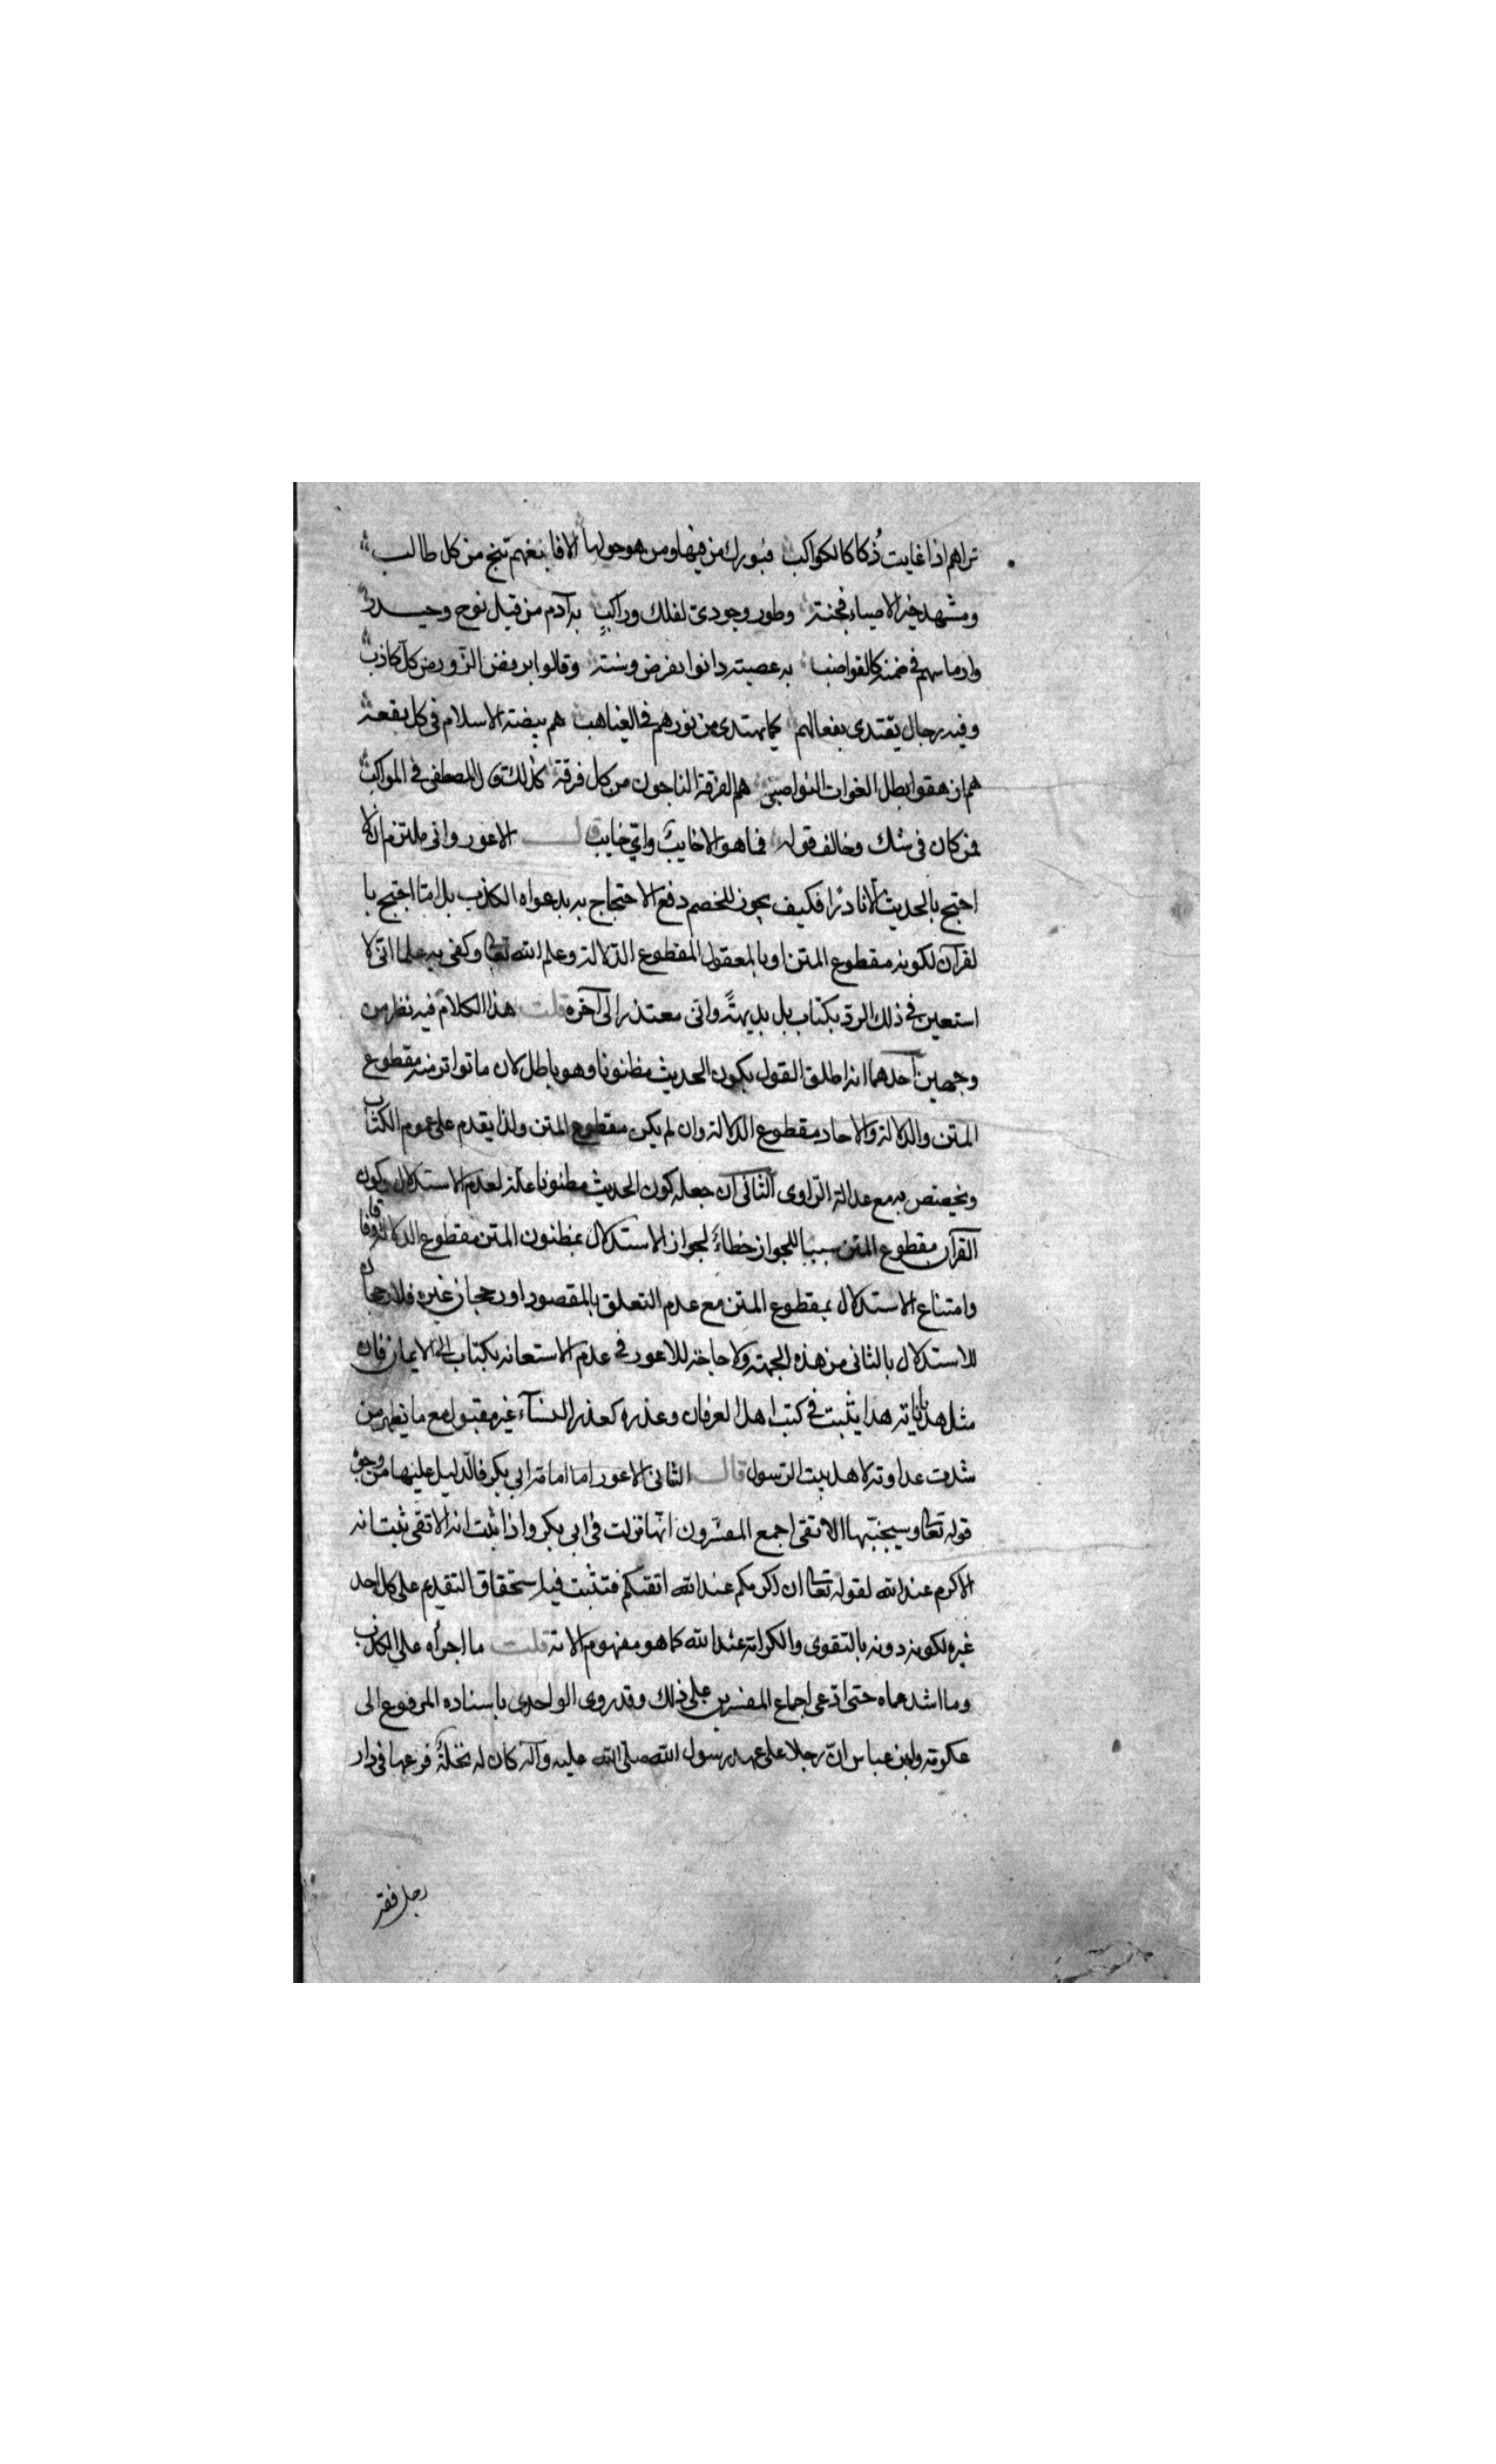 تراهم اذا غابت ذُكا كالكواكب فبورك من فيها ومن هو حولها الا فابغهم تنج من كل طالب
ومشهد خير الاوصياء فجنة وطور وجودي لفلك وراكبٍ به آدم من قبل نوح وحيدر
وارماسهم في ضمنه كالقواضب به عصبة دانوا بفرض وسنة وقالوا برفض الزور من كل كاذب
وفيه رجال يقتدى بفعالهم كما يهتدى من نورهم في الغياهب هم بيضة الاسلام في كل بقعة
هم ازهقوا بطل الغوات النواصب هم الفرقة الناجون من كل فرقة كذلك المصطفى في المواكب
فمن كان في شك وخالف قوله فما هو الا خايبٌ وايّ خايب قال الاعور واني ملتزم ان لا
احتج بالحديث الا نادرًا فكيف يجوز للخصم دفع الاحتجاج به بدعواه الكذب بل انما احتج با
لقرآن لكونه مقطوع المتن او بالمعقول المقطوع الدلالة وعلم الله تعا وكفى به علما انى لا
استعين في ذلك الرد بكتاب بل بديهةً وانى معتذر الى آخره قلت هذا الكلام فيه نظر من
وجهين احدهما انه اطلق القول بكون الحديث مظنونا وهو باطل لان ما تواتر منه مقطوع
المتن والدلالة والاحاد مقطوع الدلالة وان لم يكن مقطوع المتن ولذا يقدم على عموم الكتاب
ويخصص به مع عدالة الراوى الثانى ان جعله كون الحديث مظنونا علة لعدم الاستدلال وكون
القرآن مقطوع المتن سببا للجواز خطاءً لجواز الاستدلال بمظنون المتن مقطوع الدلالة وفاقا
وامتناع الاستدلال بمقطوع المتن مع عدم التعلق بالمقصود او رجحان غيره فلا رجحان
للاستدلال بالثانى من هذه الجهة ولا حاجة للاعور في عدم الاستعانة بكتاب الى الايمان فان
مثل هذياناته هذا يثبت في كتب اهل العرفان وعذره كعذر النسآء غير مقبول مع ما يظهر من
شدت عداوته لاهل بيت الرسول قال الثانى الاعور اما امامة ابي بكر فالدليل عليها من وجوه
قوله تعا وسيجنّبها الاتقى اجمع المفسّرون انّها نزلت في ابي بكر واذا ثبت انه الاتقى ثبت انه
الاكرم عند الله لقوله تعا ان اكرمكم عند الله اتقيكم فتثبت فيه استحقاق التقدم على كل احد
غيره لكونه دونه بالتقوى والكرامة عند الله كما هو مفهوم الاية قلت ما اجرأه على الكذب
وما اشد عماه حتى ادعى اجماع المفسرين على ذلك وقد روى الواحدى باسناده المرفوع الى
عكرمة وابن عباس انّ رجلا على عهد رسول الله صلى الله عليه وآله كان له نخلةٌ فرعها في دار
رجل فقير